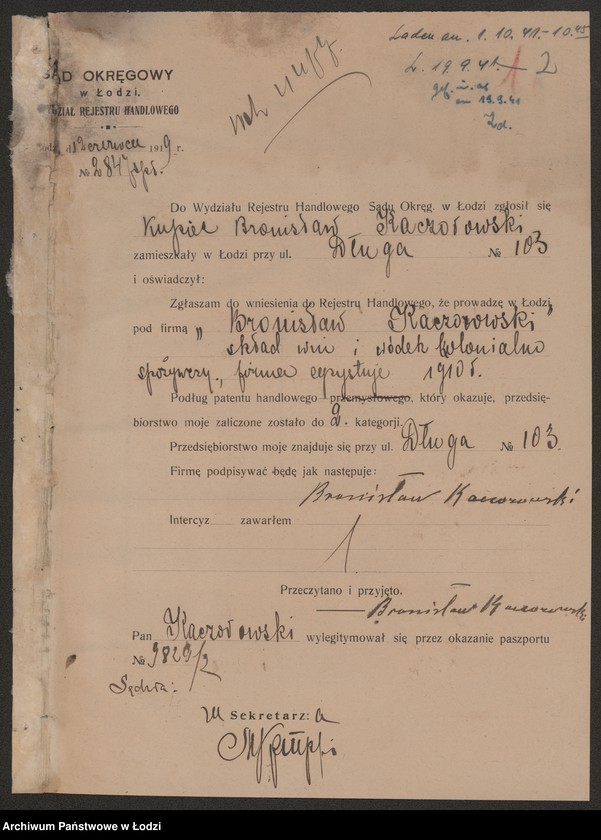 Laden am. 1. 10. 41 - 10.45
L. 19.9.41. 2
19.9.41
SĄD OKRĘGOWY
w Łodzi.
DZIAŁ REJESTRU HANDLOWEGO
d. 12 czerwca 1919 r.
№ 2847
Do Wydziału Rejestru Handlowego Sądu Okręg. w Łodzi zgłosił się
Kupiec Bronisław Kaczorowski
zamieszkały w Łodzi przy ul. Długa № 103
i oświadczył:
Zgłaszam do wniesienia do Rejestru Handlowego, że prowadzę w Łodzi
pod firmą „Bronisław Kaczorowski"
skład win i wódek kolonialno
spożywczy., firma egzystuje 1910 r.
Podług patentu handlowego przemysłowego, który okazuje, przedsię-
biorstwo moje zaliczone zostało do 2. kategorji.
Przedsiębiorstwo moje znajduje się przy ul. Długa № 103.
Firmę podpisywać będę jak następuje:
Bronisław Kaczorowski
Intercyz zawarłem
Przeczytano i przyjęto.
Bronisław Kaczorowski
Pan Kaczorowski wylegitymował się przez okazanie paszportu
№ 9829/2
Sędzia:
Sekretarz:
Archiwum Państwowe w Łodzi